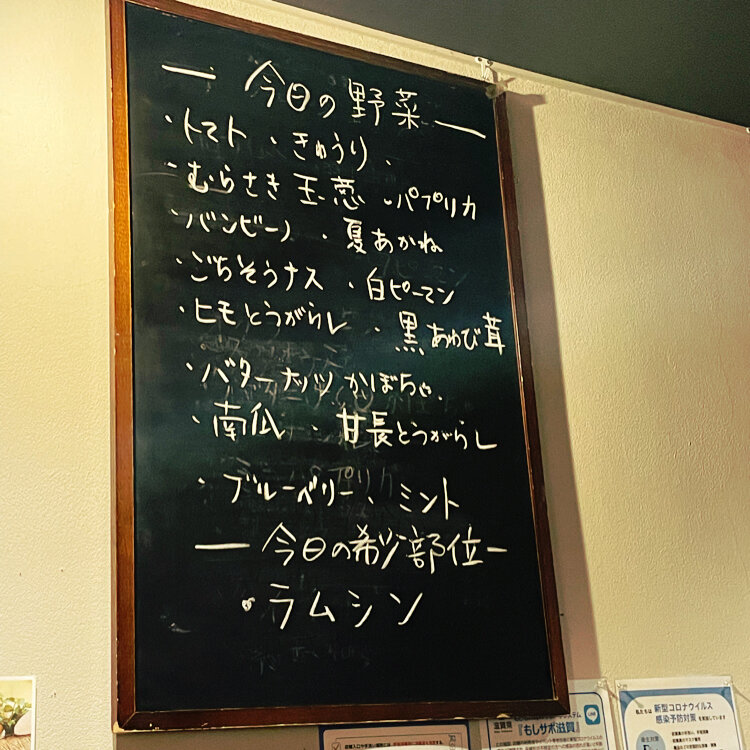 — 今日の野菜 —
・トマト ・きゅうり・
・むらさき玉葱 ・パプリカ
・バンビーノ ・夏あかね
・ごちそうナス ・白ピーマン
・ヒモとうがらし ・黒あわび茸
・バターナッツかぼちゃ
・南瓜 ・甘長とうがらし
・ブルーベリー・ミント
— 今日の希少部位 —
・ラムシン
滋賀県
『もしサポ滋賀』
LINE
私たちは 新型コロナウイルス
感染予防対策 を実施しています